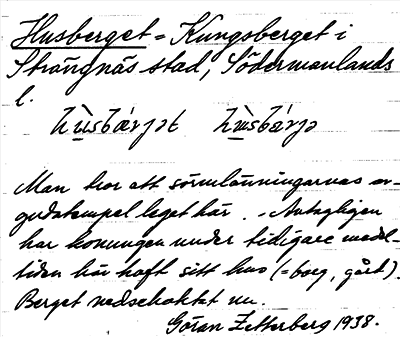 Husberget = Kungsberget i
Strängnäs stad, Södermanlands
l.
hùsbærjət hùsbærjə
Man tror att sörmlänningarnas av-
gudatempel legat här. – Antagligen
har konungen under tidigare medel-
tiden här haft sitt hus (= borg, gård).
Berget nedschaktat nu.
Göran Zetterberg 1938.